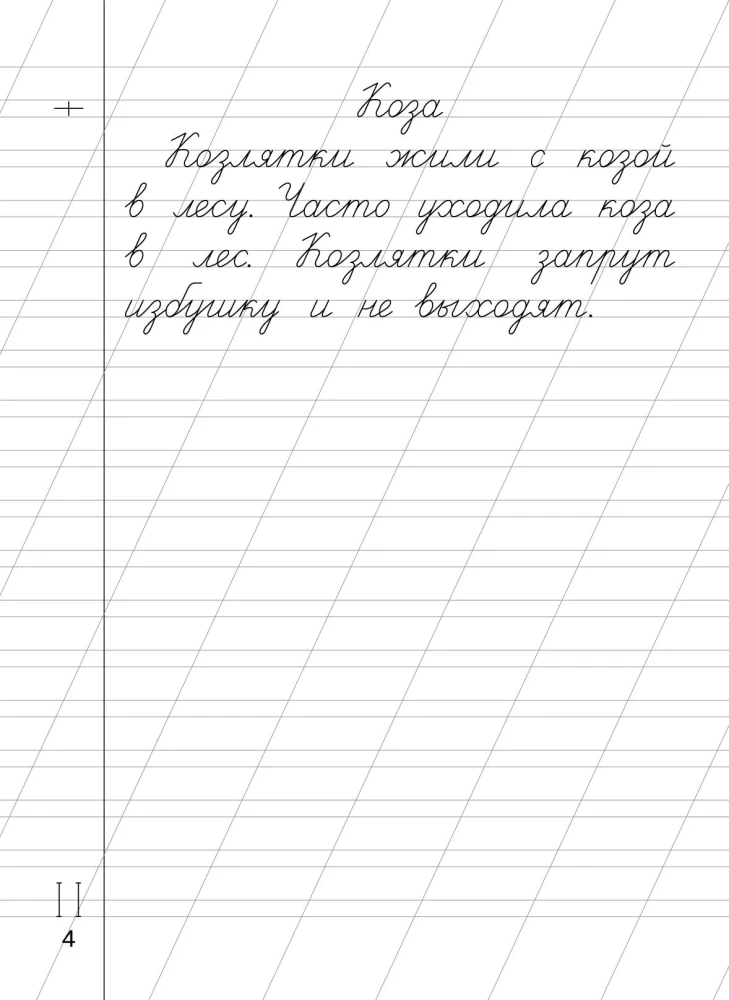 Коза
Козлятки жили с козой
в лесу. Часто уходила коза
в лес. Козлятки запрут
избушку и не выходят.
4